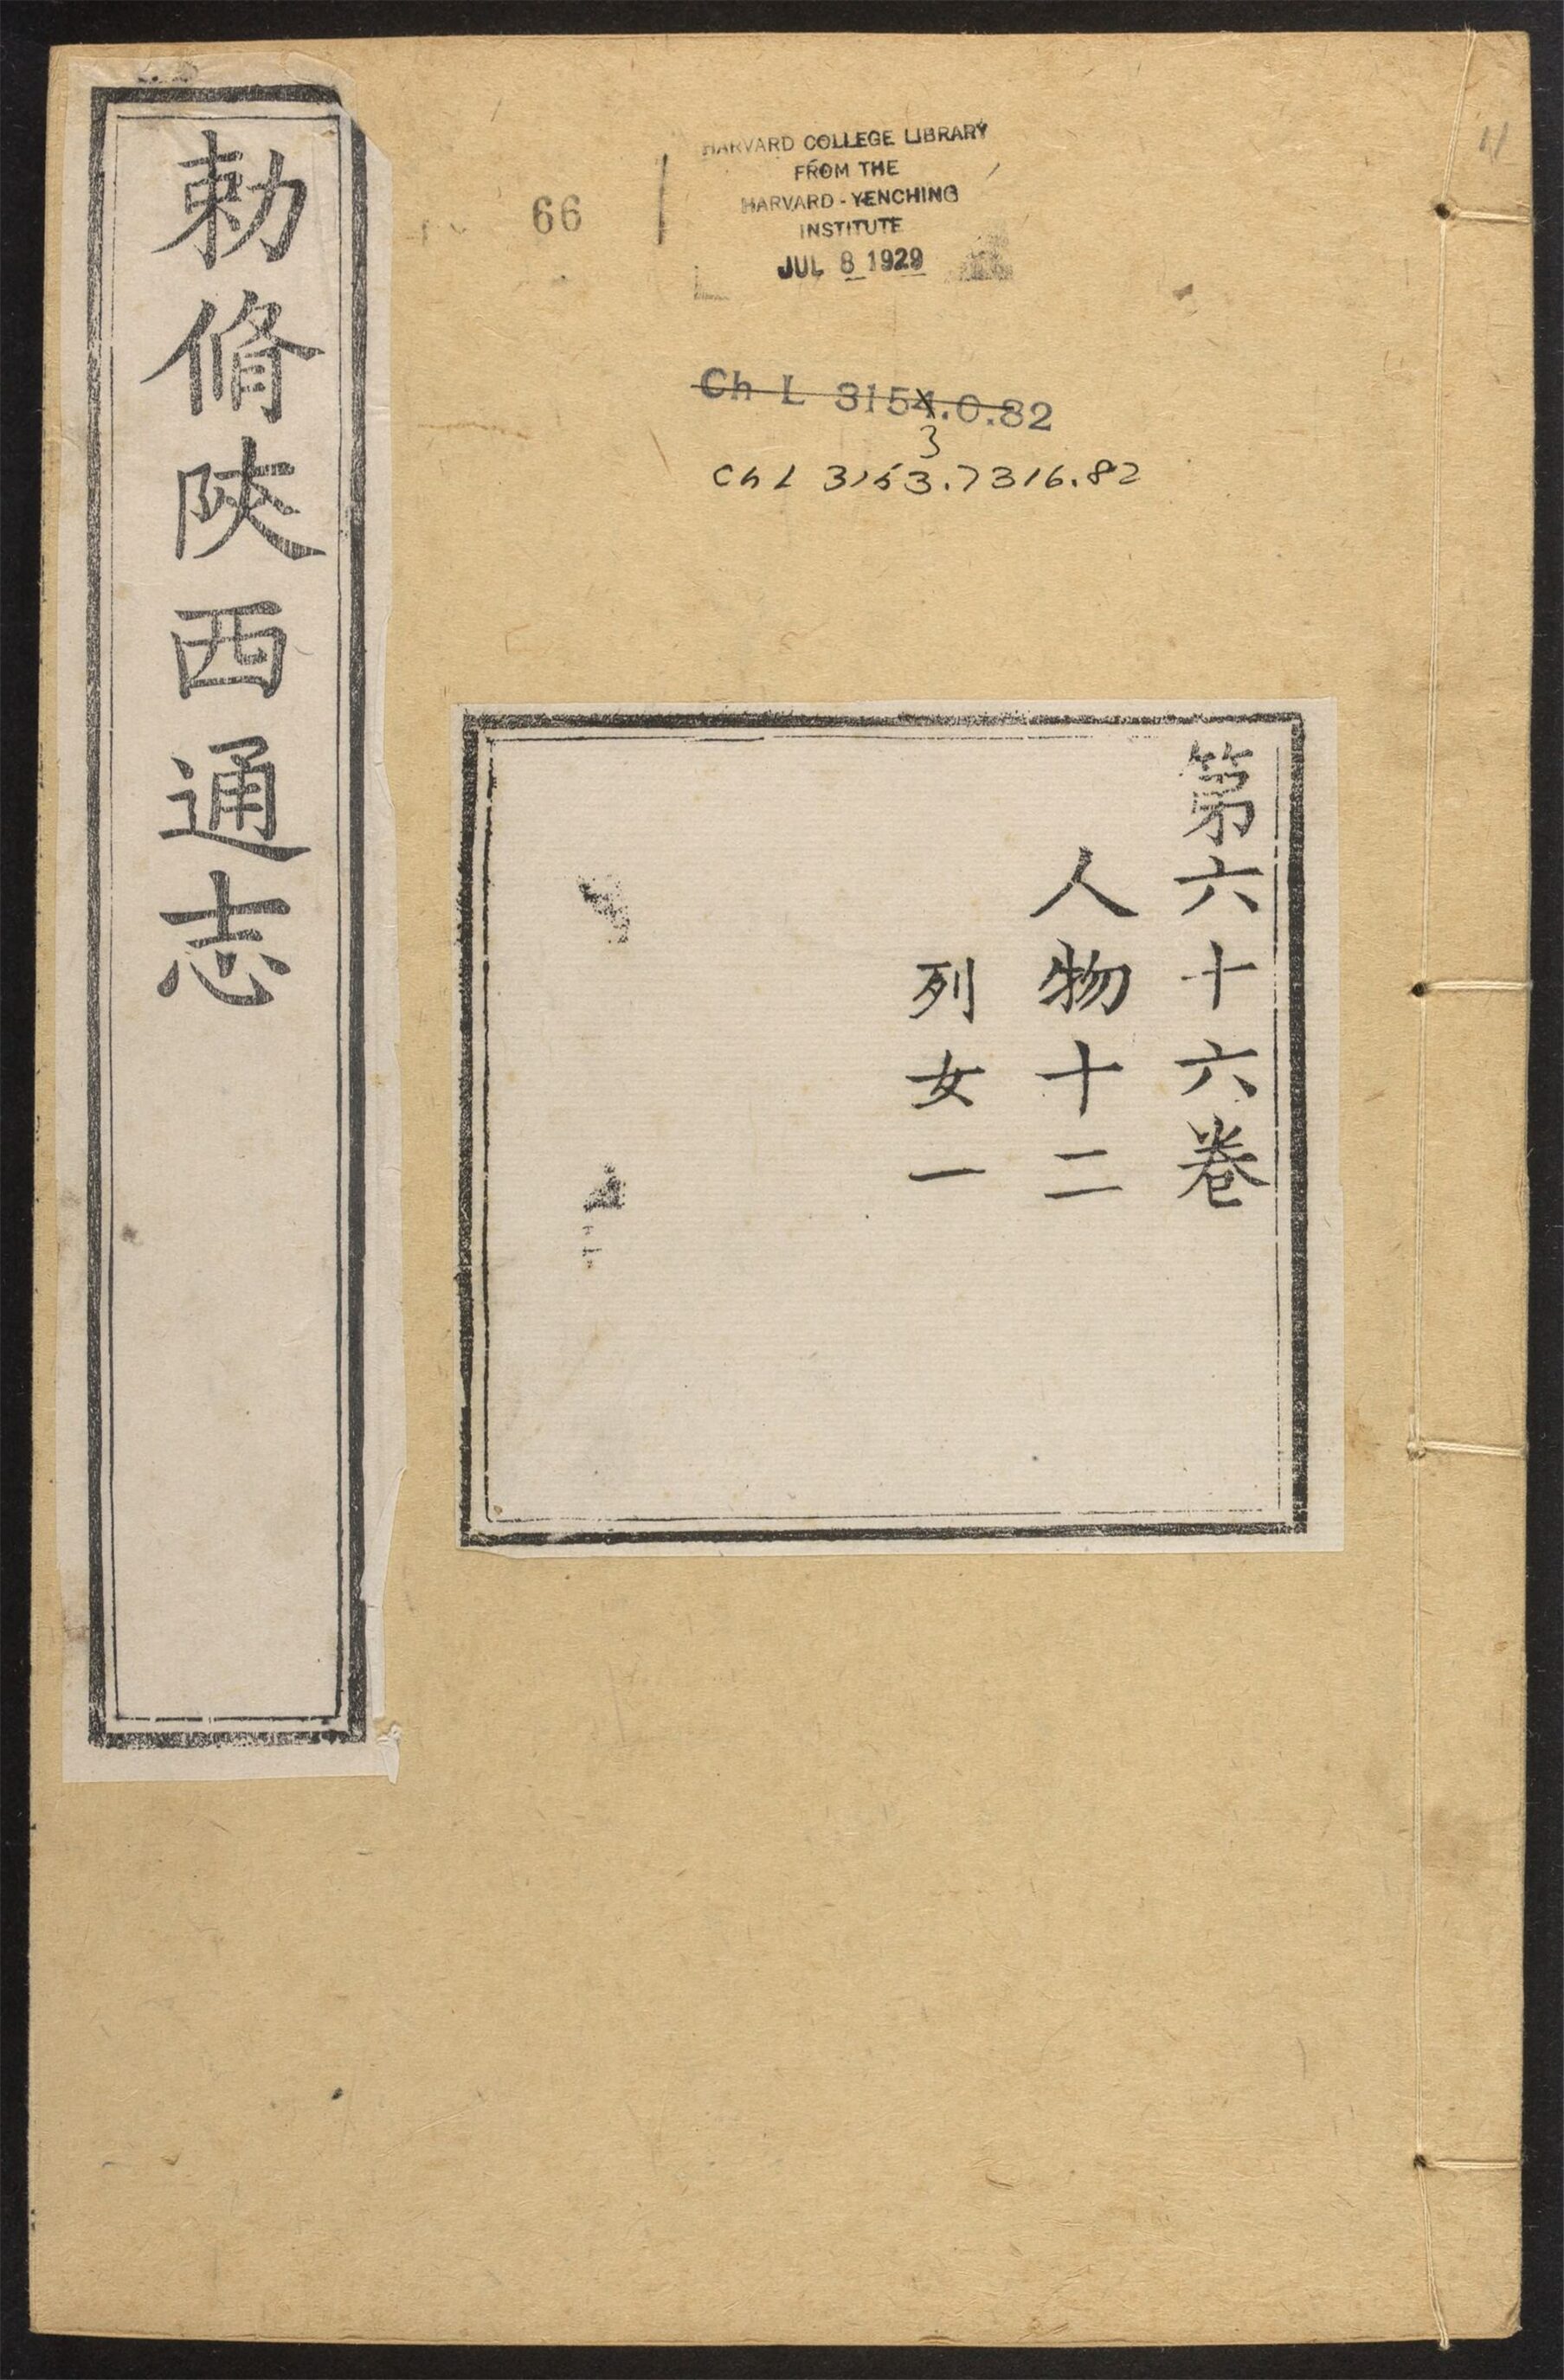 勅脩陜西通志
66
HARVARD COLLEGE LIBRARY
FROM THE
HARVARD-YENCHING
INSTITUTE
JUL 8 1929
Ch L 3154.0.82
3
Ch L 3153.7316.82
第六十六卷
人物十二
列女一